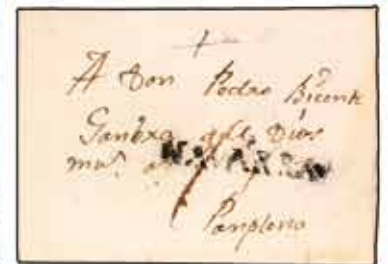 A Don Pedro Bicente
Ganbra q gde Dios
ms as
NAVARRA
Panplona